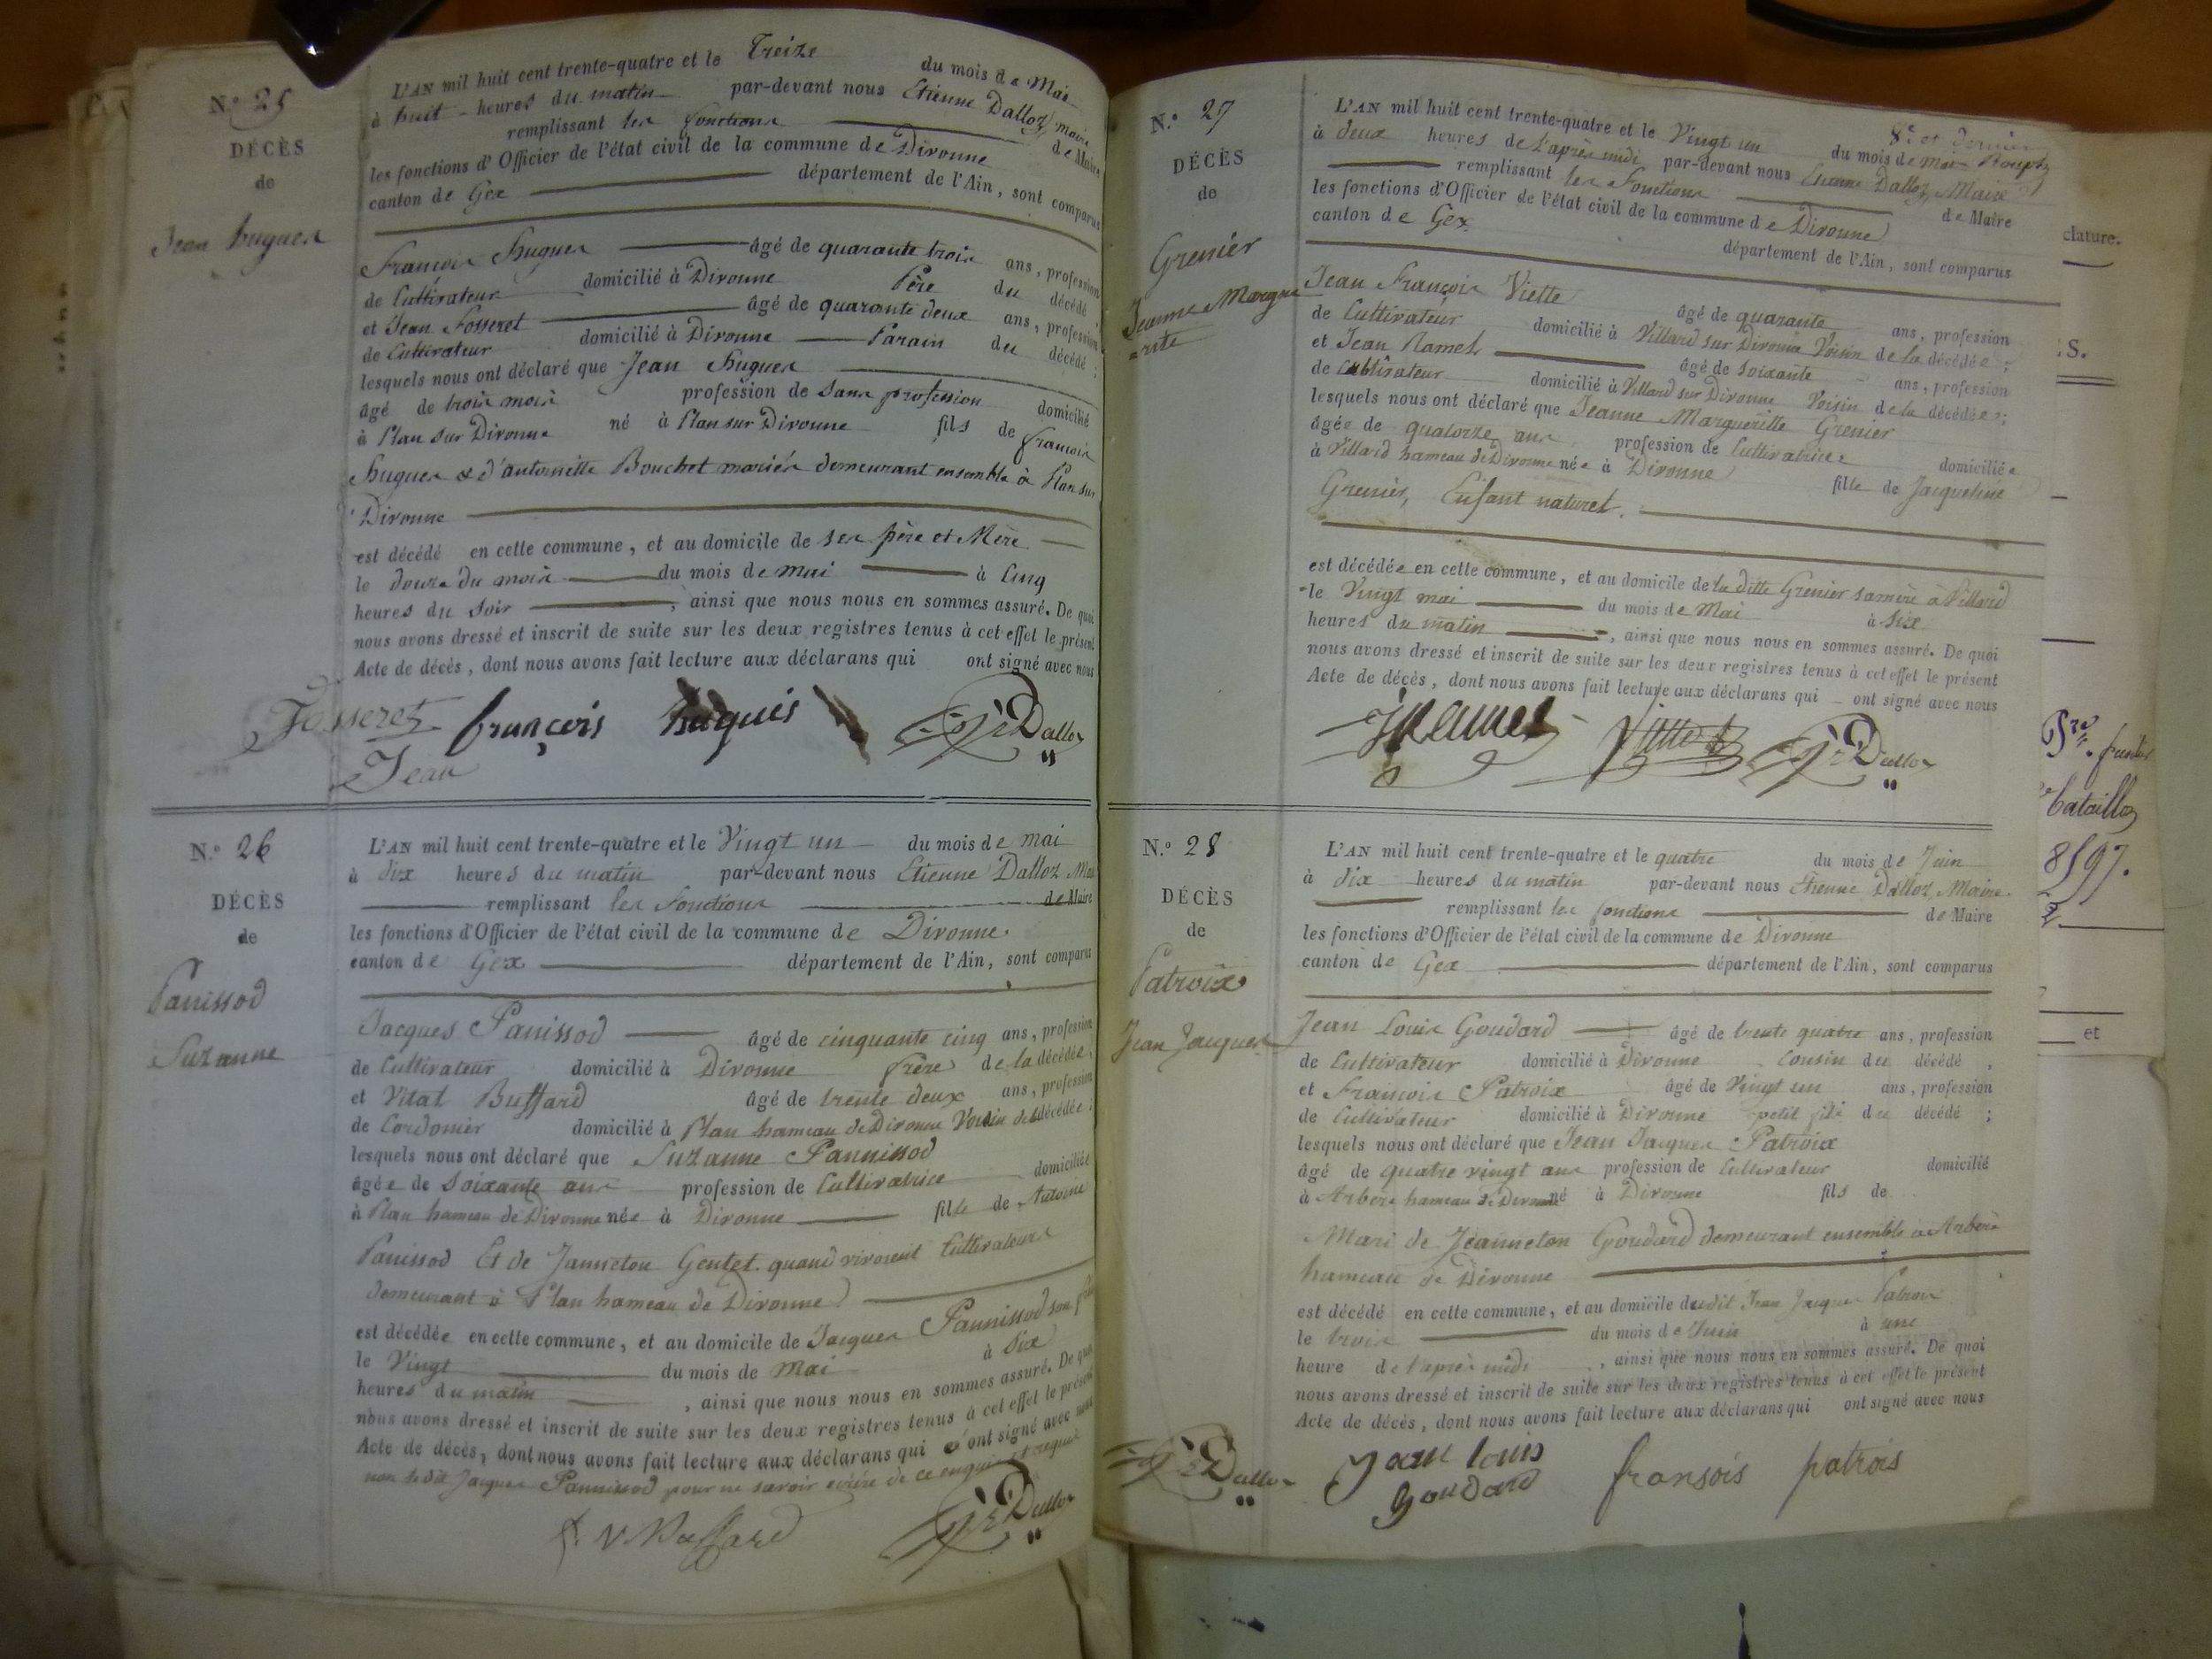 N.º 25
DÉCÈS
de
Jean hugues
L'AN mil huit cent trente-quatre et le Treize du mois de Mai
à huit heures du matin par-devant nous Etienne Dalloz maire
remplissant les fonctions de Maire
les fonctions d'Officier de l'état civil de la commune de Divonne
canton de Gex département de l'Ain, sont comparus
François Hugues âgé de quarante trois ans, profession
de Cultivateur domicilié à Divonne Père du décédé,
et Jean Fosseret âgé de quarante deux ans, profession
de Cultivateur domicilié à Divonne Parain du décédé;
lesquels nous ont déclaré que Jean Hugues
âgé de trois mois profession de Sans profession domicilié
à Plan sur Divonne né à Plan sur Divonne fils de francois
Hugues & d'antoinette Bouchet mariés demeurant ensemble à Plan sur
Divonne
est décédé en cette commune, et au domicile de ses père et Mère
le douze du mois du mois de mai à Cinq
heures du Soir, ainsi que nous nous en sommes assuré. De quoi
nous avons dressé et inscrit de suite sur les deux registres tenus à cet effet le présent
Acte de décès, dont nous avons fait lecture aux déclarans qui ont signé avec nous
Fosseret françois huguis Dalloz
Jean
N.º 26
DÉCÈS
de
Panissod
Suzanne
L'AN mil huit cent trente-quatre et le Vingt un du mois de mai
à dix heures du matin par-devant nous Etienne Dalloz Mai
remplissant les fonctions de Maire
les fonctions d'Officier de l'état civil de la commune de Divonne.
canton de Gex département de l'Ain, sont comparus
Jacques Panissod âgé de cinquante cinq ans, profession
de Cultivateur domicilié à Divonne frère de la décédée,
et Vital Buffard âgé de trente deux ans, profession
de Cordonier domicilié à Plan hameau de Divonne Voisin de la décédée;
lesquels nous ont déclaré que Suzanne Pannissod
âgée de Soixante ans profession de Cultivatrice domiciliée
à Plan hameau de Divonne née à Divonne fille de Antoine
Panissod Et de Jannetou Gentet quand vivoient Cultivateurs
demeurant à Plan hameau de Divonne
est décédée en cette commune, et au domicile de Jacques Pannissod son
le Vingt du mois de Mai à Six
heures du matin, ainsi que nous nous en sommes assuré. De quoi
nous avons dressé et inscrit de suite sur les deux registres tenus à cet effet le présent
Acte de décès, dont nous avons fait lecture aux déclarans qui ont signé avec nous
non le dit Jacques Pannissod pour ne savoir écrire de ce enquis et requis
V Buffard Dalloz
N.º 27
DÉCÈS
de
Grenier
Jeanne Margue
rite
8e et dernier
L'AN mil huit cent trente-quatre et le Vingt un du mois de mai
à deux heures de l'après midi par-devant nous Etienne Dalloz Maire
remplissant les Fonctions de Maire
les fonctions d'Officier de l'état civil de la commune de Divonne
canton de Gex département de l'Ain, sont comparus
Jean François Viette âgé de quarante ans, profession
de Cultivateur domicilié à Villard sur Divonne Voisin de la décédée;
et Jean Ramel âgé de Soixante ans, profession
de Cultivateur domicilié à Villard sur Divonne Voisin de la décédée;
lesquels nous ont déclaré que Jeanne Margueritte Grenier
âgée de quatorze ans profession de Cultivatrice domiciliée
à Villard hameau de Divonne née à Divonne fille de Jacqueline
Grenier, Enfant naturel.
est décédée en cette commune, et au domicile de la ditte Grenier sa mère à Villard
le Vingt mai du mois de Mai à Six
heures du matin, ainsi que nous nous en sommes assuré. De quoi
nous avons dressé et inscrit de suite sur les deux registres tenus à cet effet le présent
Acte de décès, dont nous avons fait lecture aux déclarans qui ont signé avec nous
Dalloz
N.º 28
DÉCÈS
de
Patroix
Jean Jacques
L'AN mil huit cent trente-quatre et le quatre du mois de Juin
à dix heures du matin par-devant nous Etienne Dalloz Maire.
remplissant les fonctions de Maire
les fonctions d'Officier de l'état civil de la commune de Divonne
canton de Gex département de l'Ain, sont comparus
Jean Louis Goudard âgé de trente quatre ans, profession
de Cultivateur domicilié à Divonne Cousin du décédé,
et François Patroix âgé de Vingt un ans, profession
de Cultivateur domicilié à Divonne petit fils du décédé;
lesquels nous ont déclaré que Jean Jacques Patroix
âgé de quatre vingt ans profession de Cultivateur domicilié
à Arbère hameau de Divonne né à Divonne fils de
Mari de Jeanneton Goudard demeurant ensemble à Arbère
hameau de Divonne
est décédé en cette commune, et au domicile dudit Jean Jacques Patroix
le trois du mois de Juin à une
heure de l'après midi, ainsi que nous nous en sommes assuré. De quoi
nous avons dressé et inscrit de suite sur les deux registres tenus à cet effet le présent
Acte de décès, dont nous avons fait lecture aux déclarans qui ont signé avec nous
Dalloz Jean louis fransois patrois
goudard
clature.
S.
bataillo
8597.
et